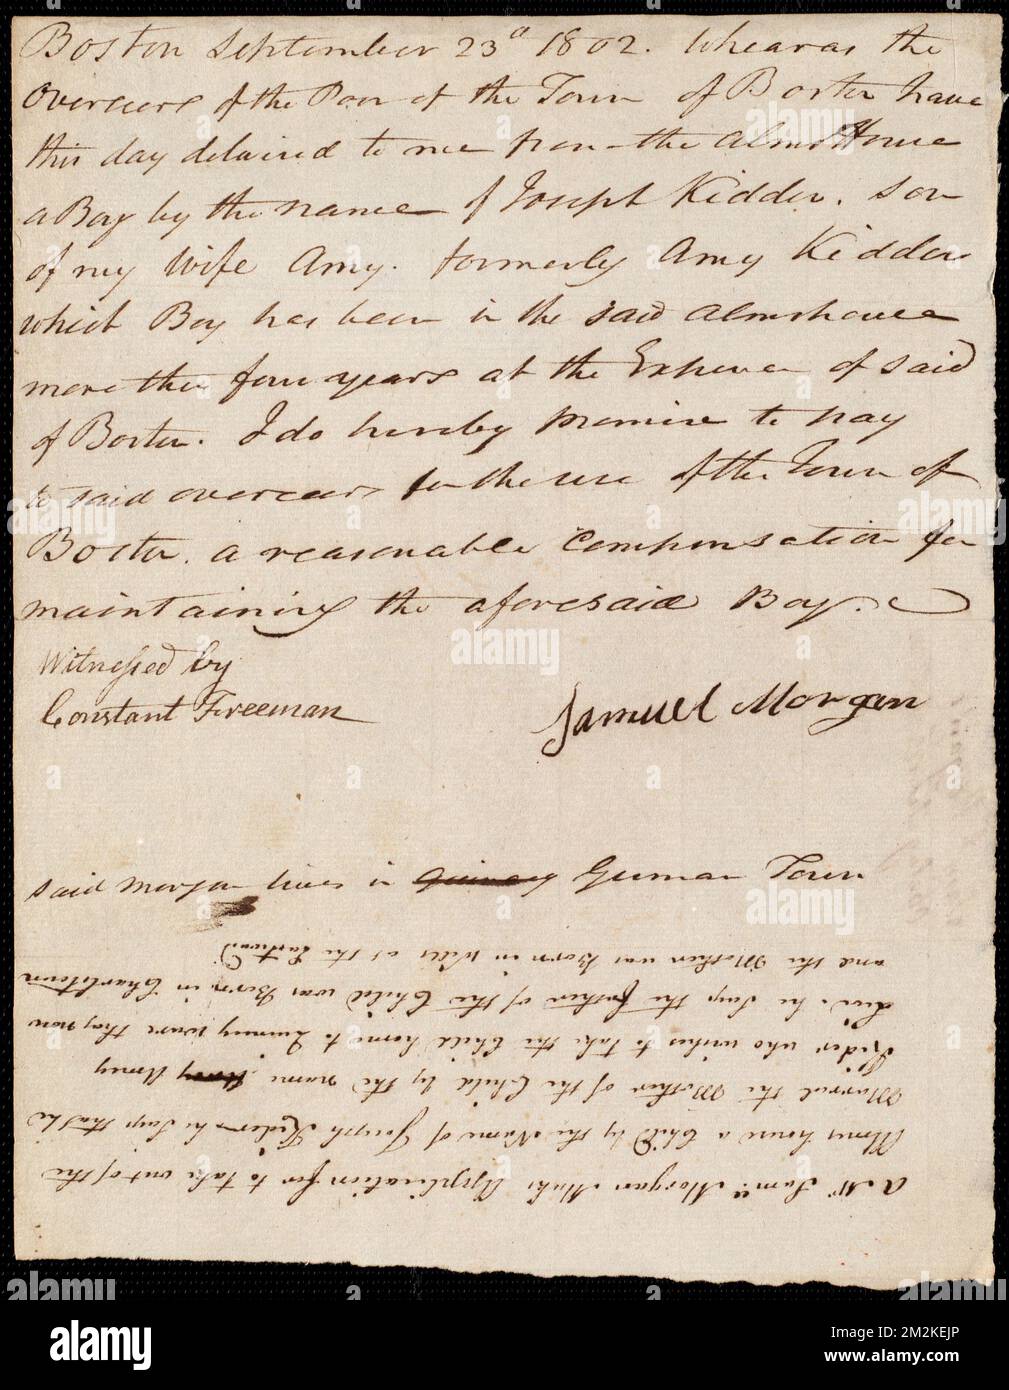 Boston September 23d 1802. Whearas the
Overseers of the Poor of the Town of Boston have
this day delaired to me from the Alms House
a Boy by the name of Joseph Kidder. Son
of my Wife Amy. formerly Amy Kidder
which Boy has been in the said almshouse
more then four years at the Expence of said
of Boston. I do hereby promise to pay
to said overseers for the use of the Town of
Boston. a reasonable Compensation for
maintaining the aforesaid Boy.
Witnessed by
Constant Freeman
Samuel Morgan
said Morgan lives in Quincey German Town
A Mr Saml Morgan Maks Application for to take out of the
Alms house a Child by the Name of Joseph Kider he Says that he
Marred the Mother of the Child by the name Amey
Kider who wishes to take the Child home to where they now
Live. he Says the father of the Child was Born in Charlstown
and the Mother was Born in at the
alamy
Image ID: 2M2KEJP
www.alamy.com